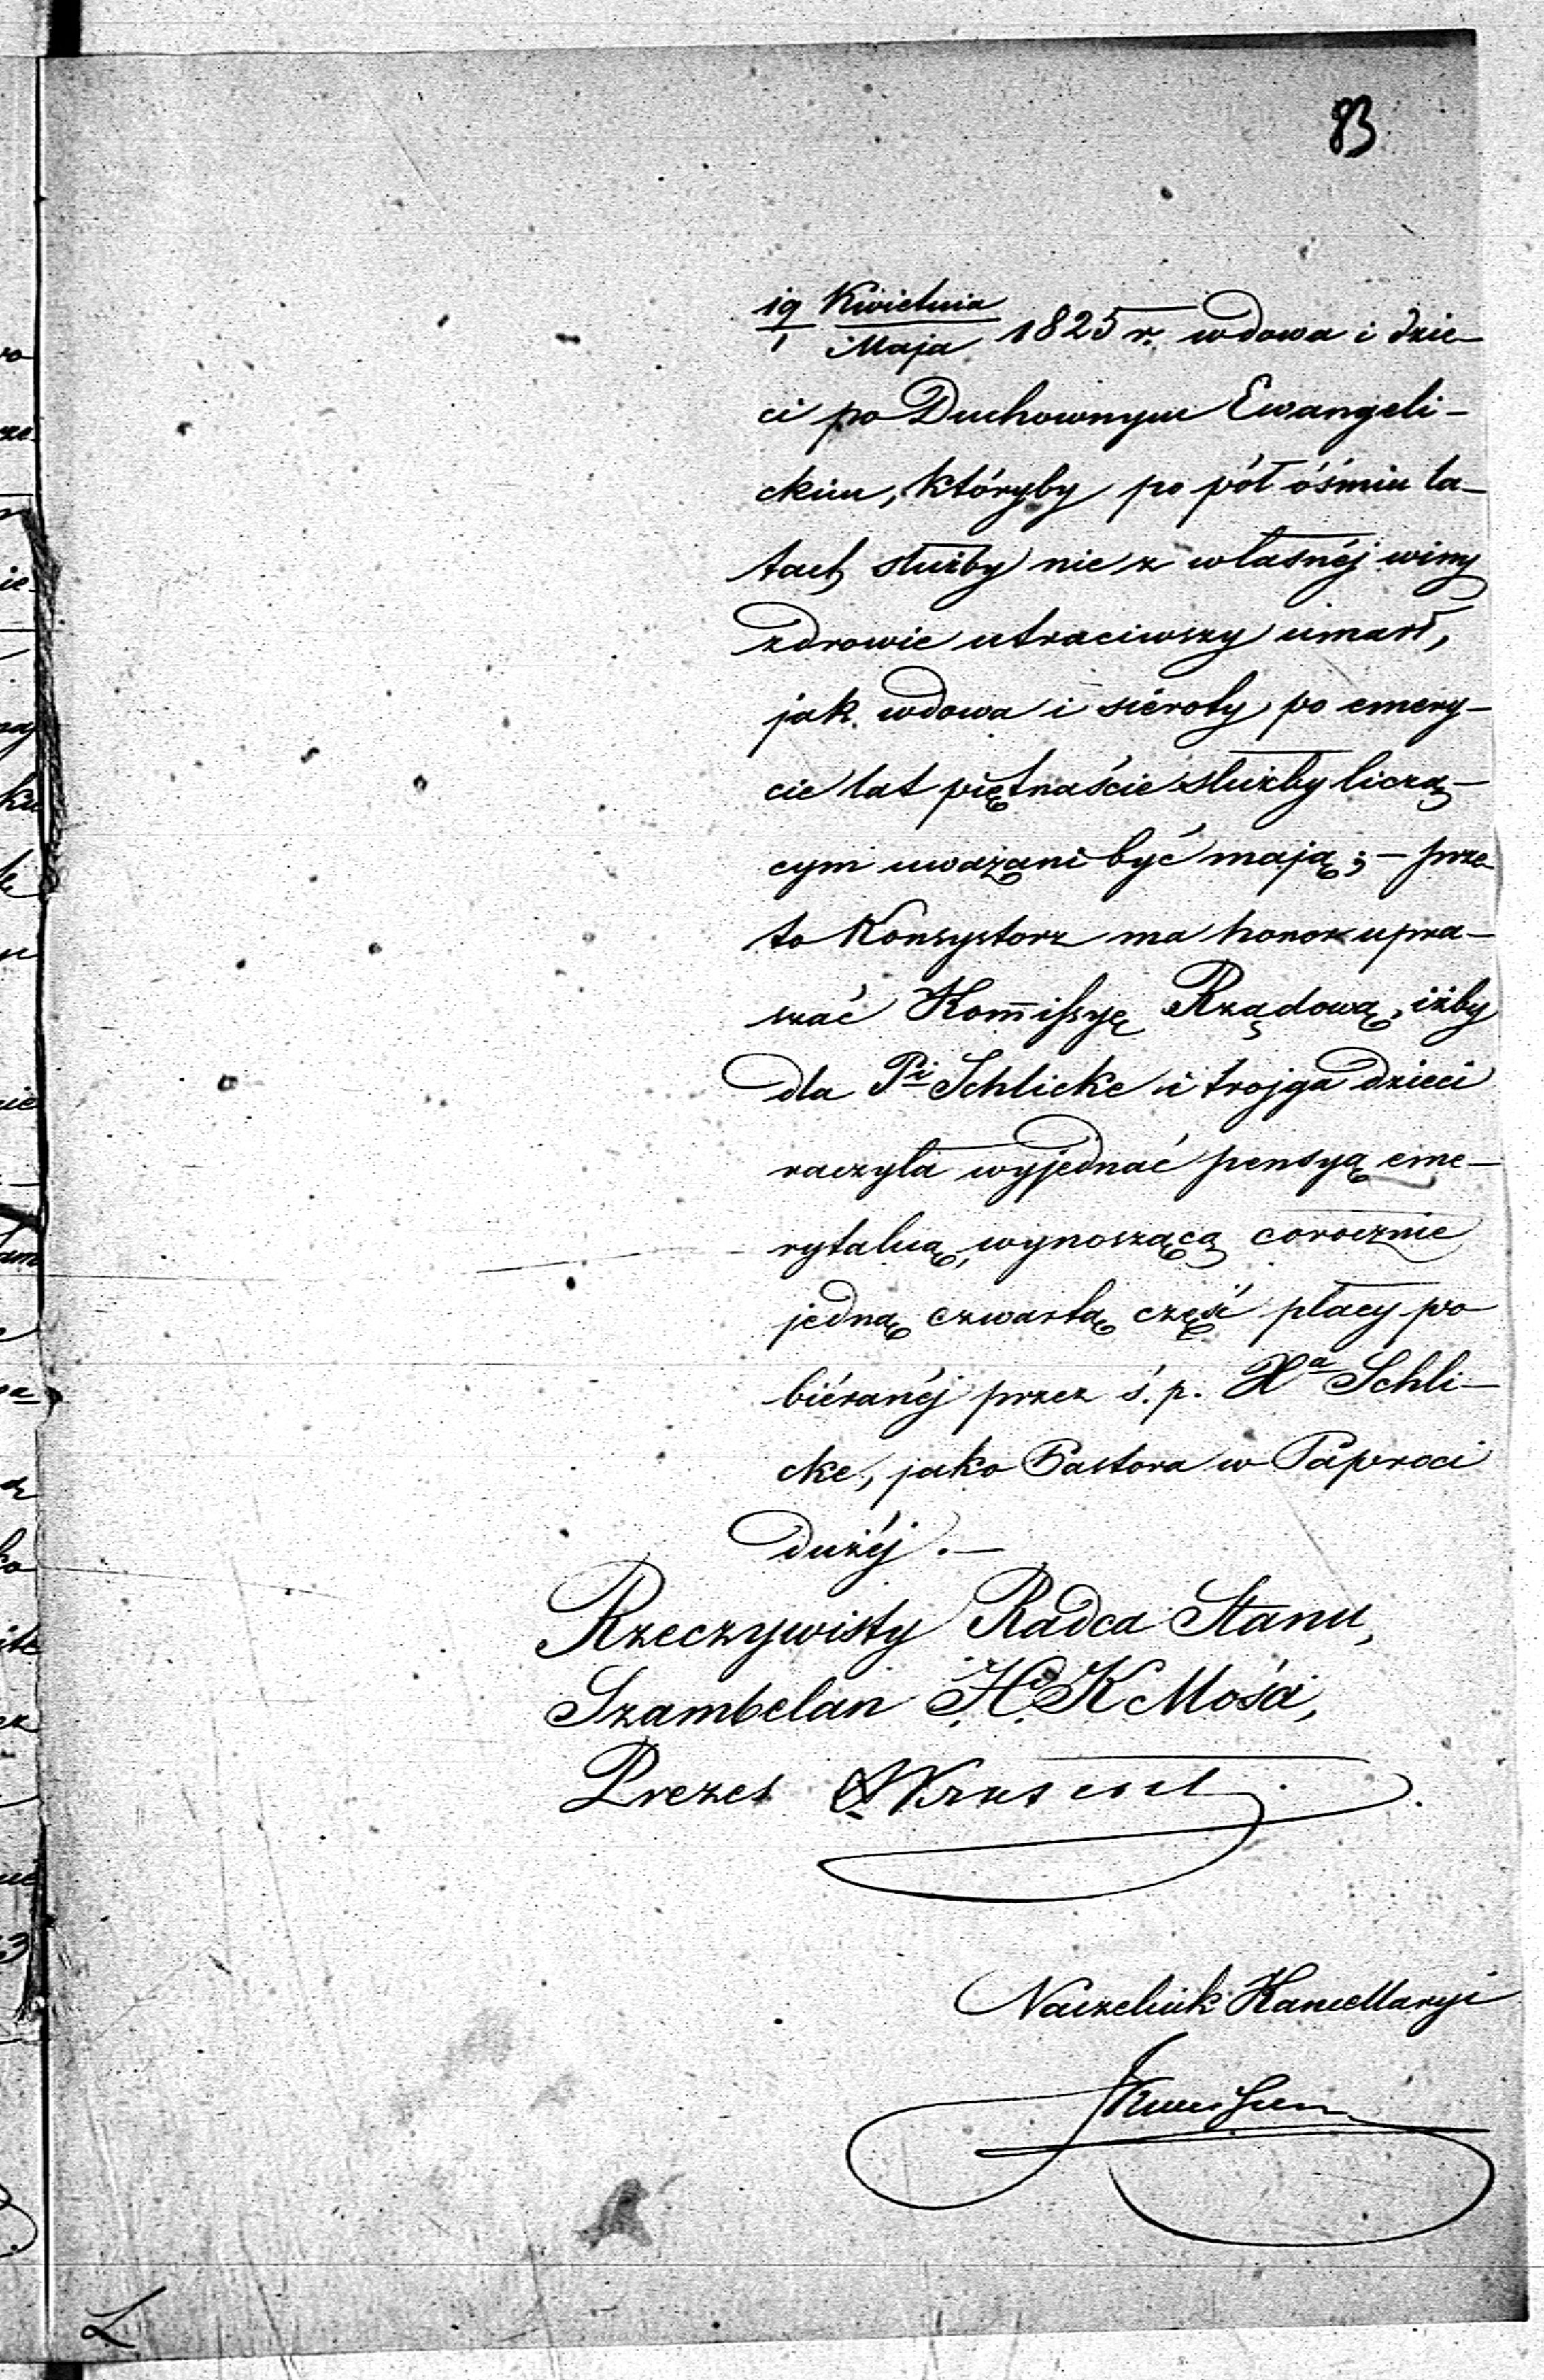 83
19 Kwietnia
1 Maja 1825 r. wdowa i dzie-
ci po Duchownym Ewangeli-
ckim, któryby po pół ósmiu la-
tach służby nie z własnéj winy
zdrowie utraciwszy umarł,
jak wdowa i siéroty po emery-
cie lat piętnaście służby liczą-
cym uważani być mają; - prze-
to Konsystorz ma honor upra-
szać Kommissyę Rządową, iżby
dla Pi Schlicke i trojga dzieci
raczyła wyjednać pensyą eme-
rytalną, wynoszącą corocznie
jedną czwartą część płacy po-
biéranéj przez ś. p. Xa Schli-
cke, jako Pastora w Paproci
dużéj. -
Rzeczywisty Radca Stanu,
Szambelan J. C. K Mości,
Prezes
Naczelnik Kancellaryi